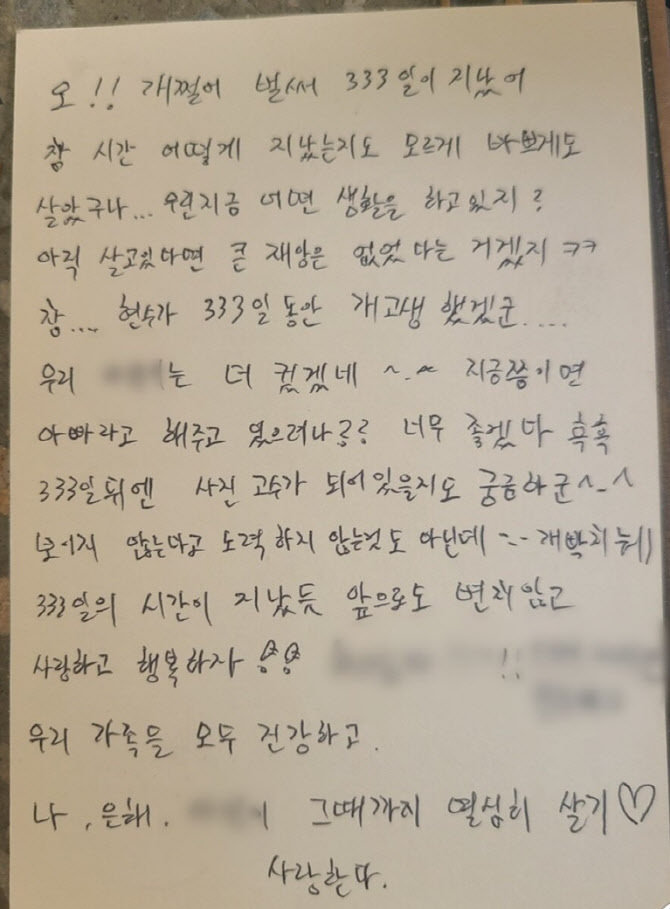 오!! 개쩔어 벌써 333일이 지났어
참 시간 어떻게 지났는지도 모르게 바쁘게도
살았구나... 우린지금 어떤 생활을 하고있지?
아직 살고있다면 큰 재앙은 없었다는 거겠지 ㅋㅋ
참... 현수가 333일동안 개고생 했겠군....
우리 는 더 컸겠네 ^-^ 지금쯤이면
아빠라고 해주고 있으려나?? 너무 좋겠다 흑흑
333일뒤엔 사진 고수가 되어있을지도 궁금하군^-^
보이지 않는다고 노력하지 않는것도 아닌데 --
333일의 시간이 지났듯 앞으로도 변함없고
사랑하고 행복하자 !!
우리 가족들 모두 건강하고.
나, 은해. 그때까지 열심히 살기♡
사랑한다.